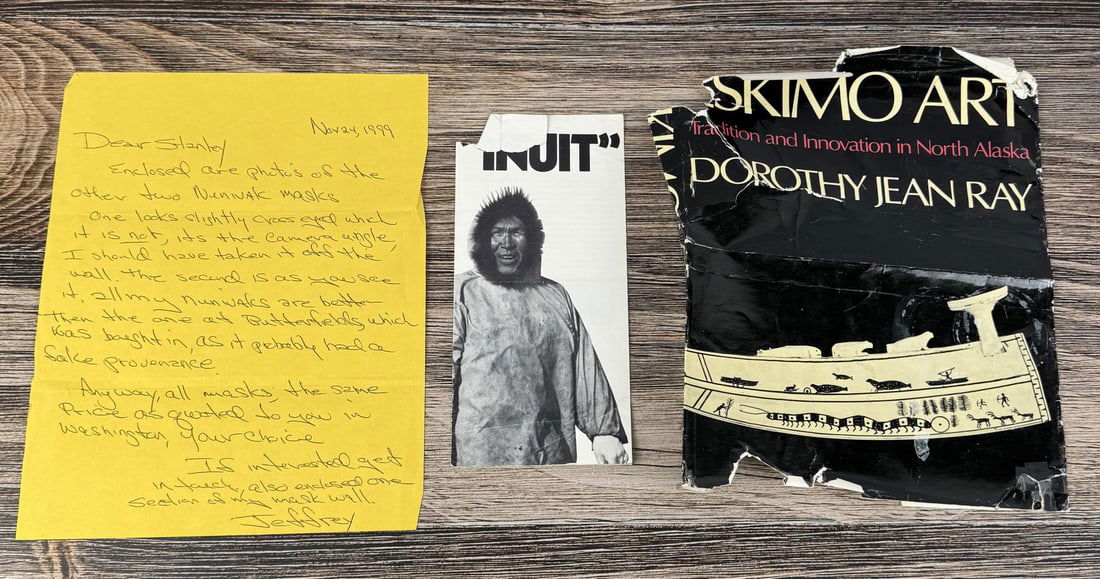 Nov 24, 1999
Dear Stanley
Enclosed are photo's of the
other two Nunivak masks
One looks slightly cross eyed which
it is not, its the camera angle,
I should have taken it off the
wall. the second is as you see
it, all my nunivaks are better
then the one at Butterfields, which
was bought in, as it probably had a
fake provenance.
Anyway, all masks, the same
Price as quoted to you in
Washington, Your choice
If interested get
in touch, also enclosed one
section of my mask wall.
Jeffrey
INUIT"
SKIMO ART
Tradition and Innovation in North Alaska
DOROTHY JEAN RAY